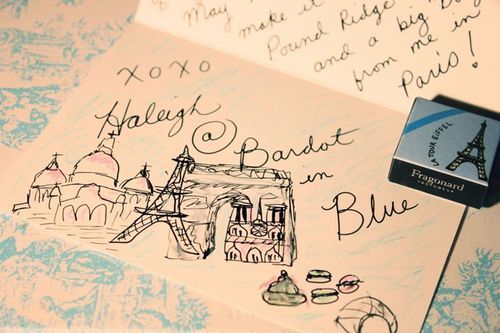 May
make it
Pound Ridge
and a big
from me in
Paris!
XOXO
Haleigh
@ Bardot
in
Blue
LA TOUR EIFFEL
Fragonard